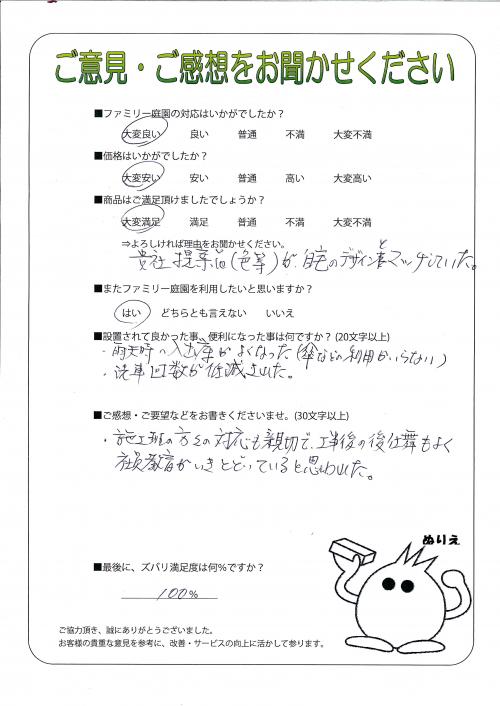 ご意見・ご感想をお聞かせください
■ファミリー庭園の対応はいかがでしたか？
大変良い 良い 普通 不満 大変不満
■価格はいかがでしたか？
大変安い 安い 普通 高い 大変高い
■商品はご満足頂けましたでしょうか？
大変満足 満足 普通 不満 大変不満
⇒よろしければ理由をお聞かせください。
貴社提案品(色等)が、自宅のデザインとマッチしていた。
■またファミリー庭園を利用したいと思いますか？
はい どちらとも言えない いいえ
■設置されて良かった事、便利になった事は何ですか？(20文字以上)
・雨天時の入出庫がよくなった(傘などの利用がいらない)
・洗車回数が低減された。
■ご感想・ご要望などをお書きくださいませ。(30文字以上)
・施工班の方々の対応も親切で、工事後の後仕舞もよく
社員教育がいきとどいていると思われた。
ぬりえ
■最後に、ズバリ満足度は何％ですか？
100％
ご協力頂き、誠にありがとうございました。
お客様の貴重な意見を参考に、改善・サービスの向上に活かして参ります。